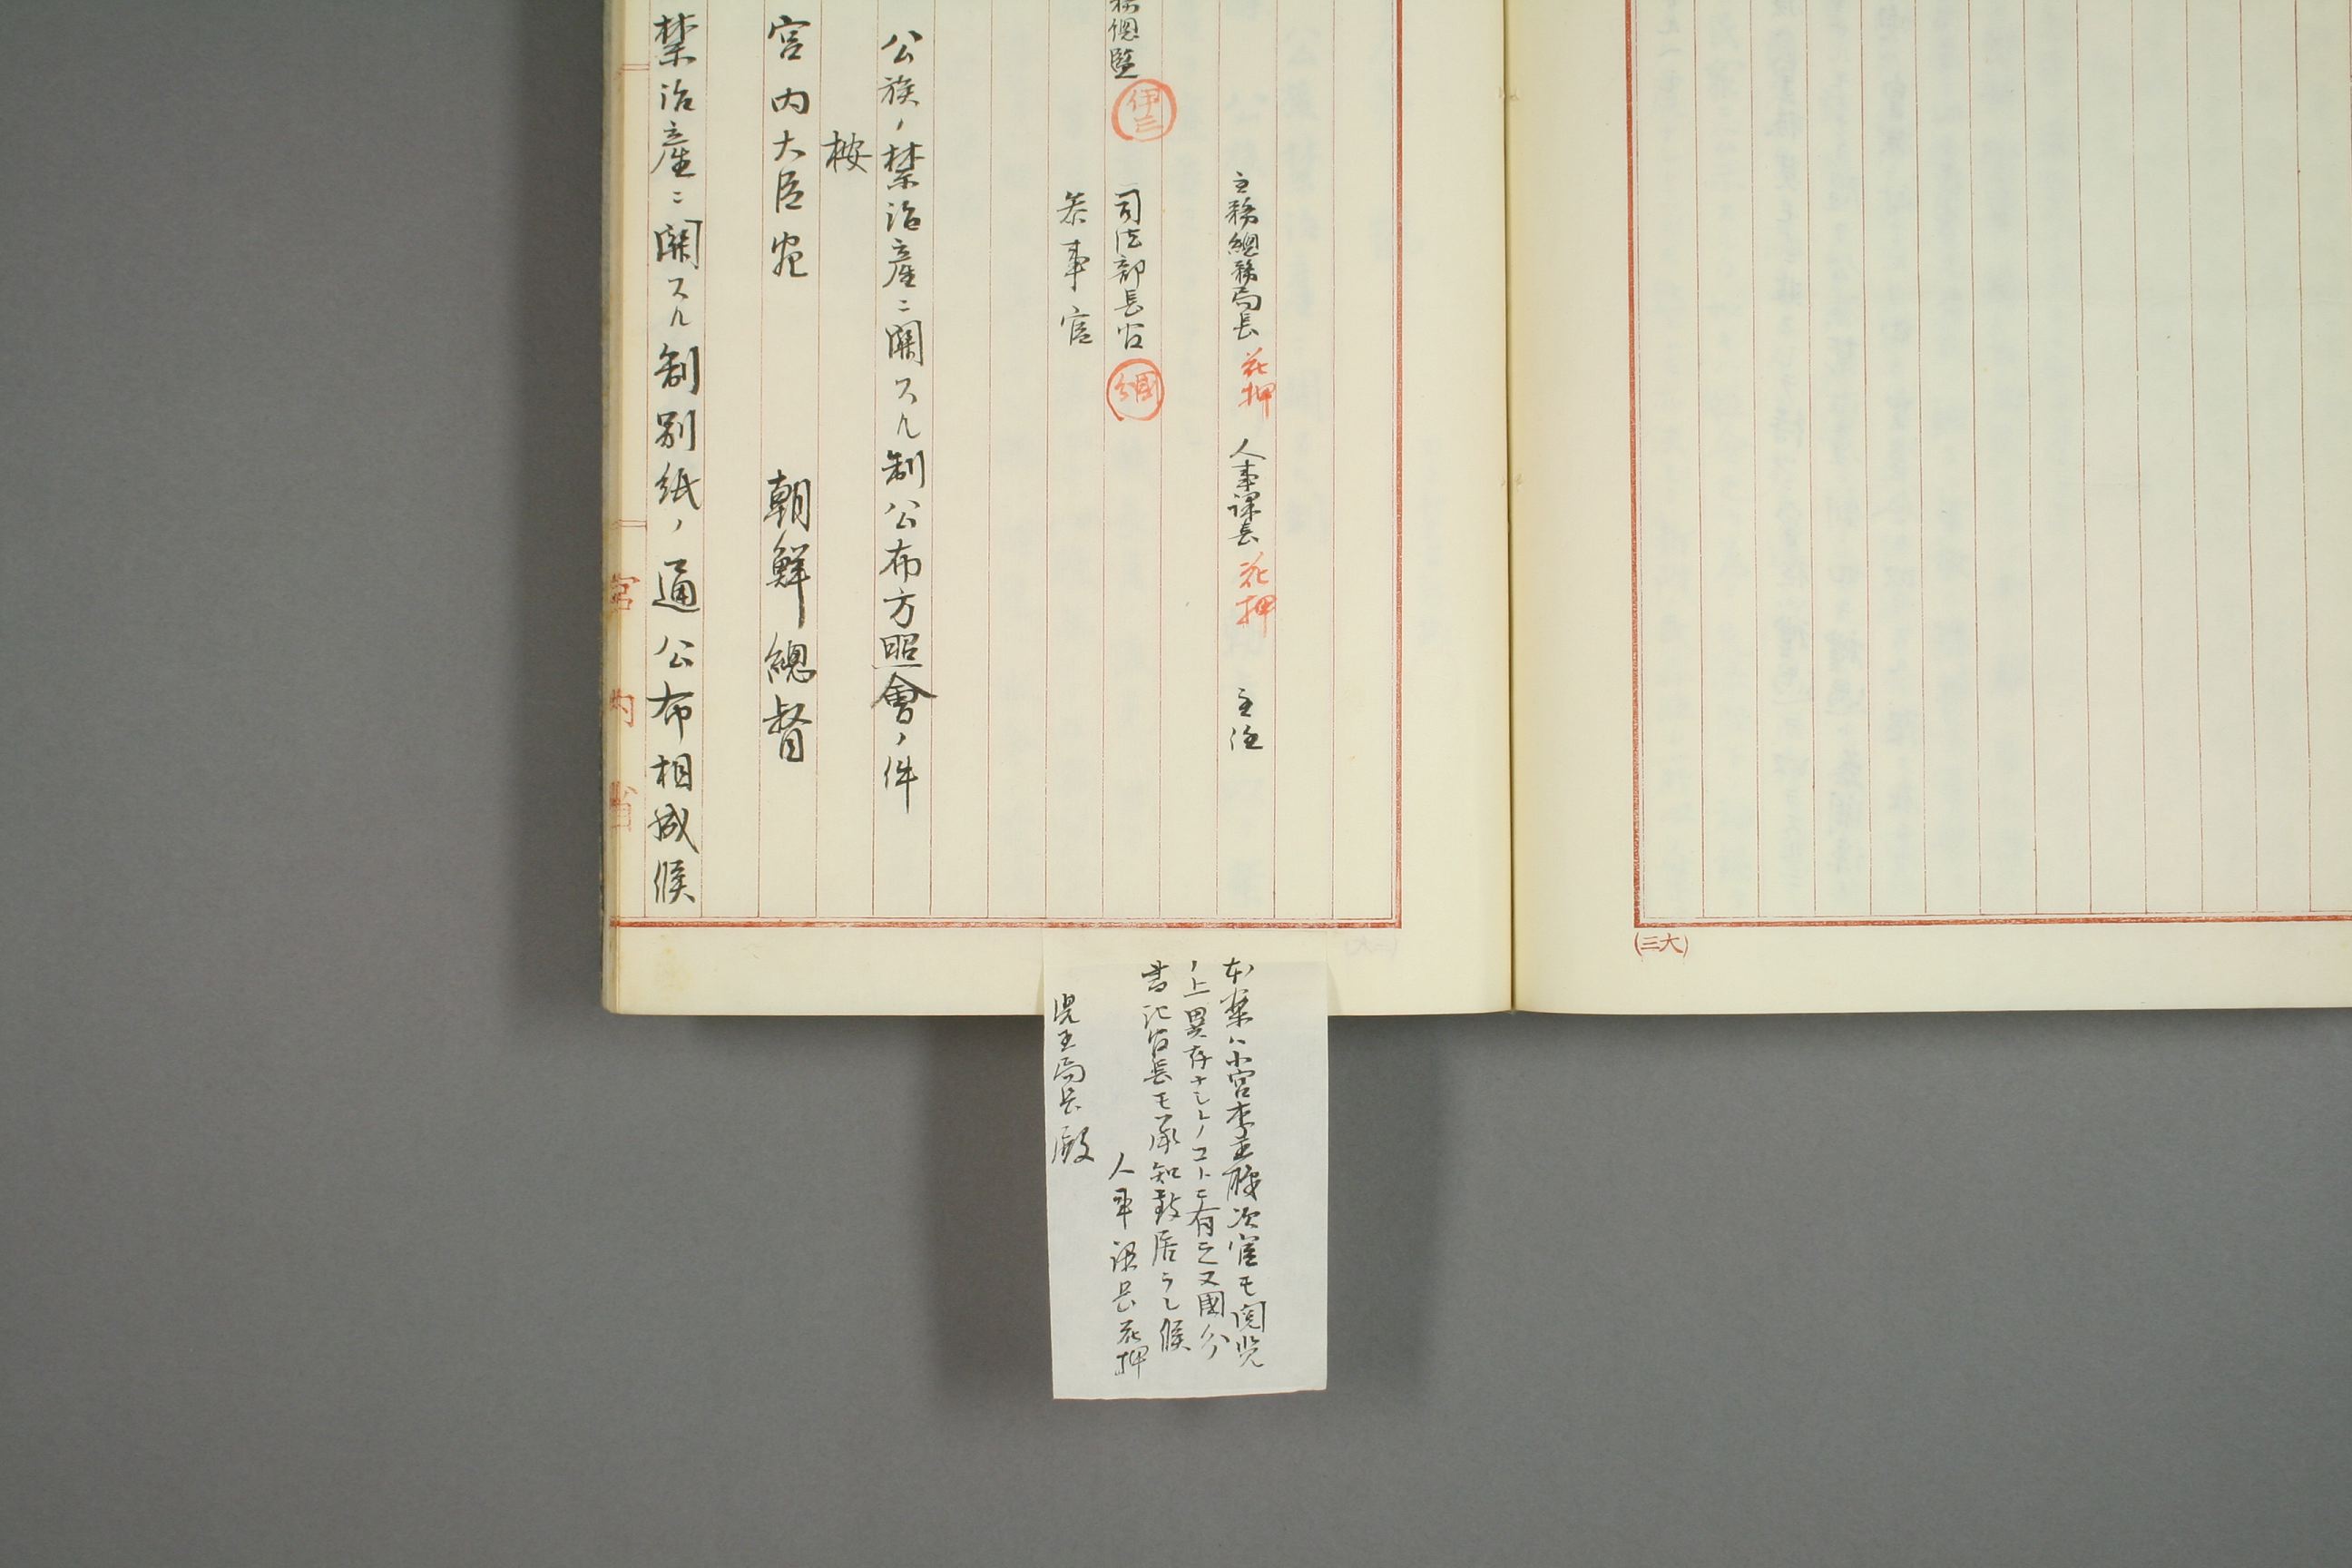 主務總務局長 花押 人事課長 花押 主任
務總監 伊三
司法部長官 國分
參事官
公族ノ禁治産ニ關スル制公布方照會ノ件
按
宮内大臣宛 朝鮮總督
禁治産ニ關スル制別紙ノ通公布相成候
宮内省
本案ハ小宮李王職次官モ閲覧
ノ上異存ナシトノコトニ有之又國分
書記官長モ承知致居ラレ候
人事課長 花押
児玉局長殿
(三大)